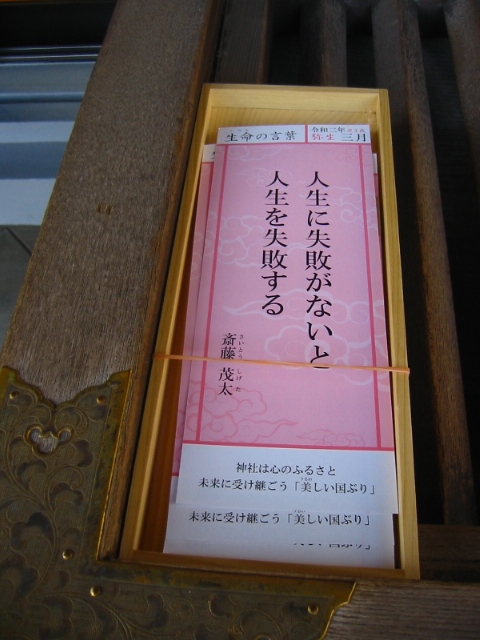 生命の言葉
令和二年
弥生 三月
人生に失敗がないと
人生を失敗する
斎藤茂太
さいとう しげた
神社は心のふるさと
未来に受け継ごう「美しい国ぶり」
うるわ
未来に受け継ごう「美しい国ぶり」
うるわ